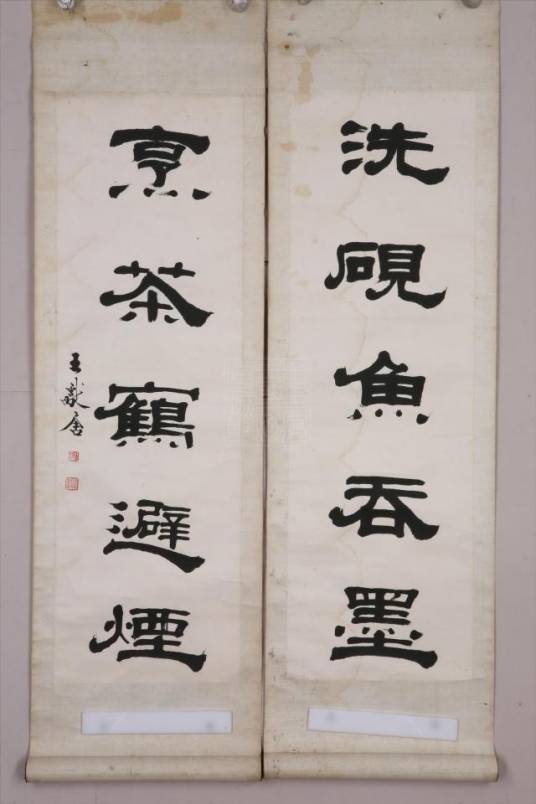 洗硯魚吞墨
烹茶鶴避煙
王獻唐